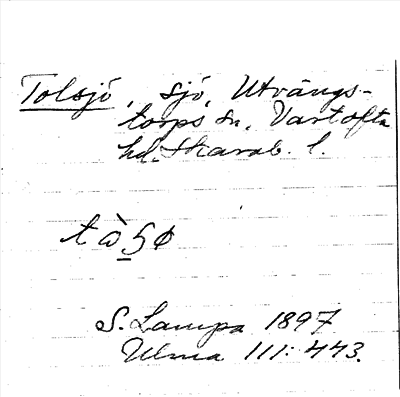 Tolsjö, sjö, Utvängs-
torps sn, Vartofta
hd. Skarab. l.
S. Lampa 1897
Ulma 111: 443.